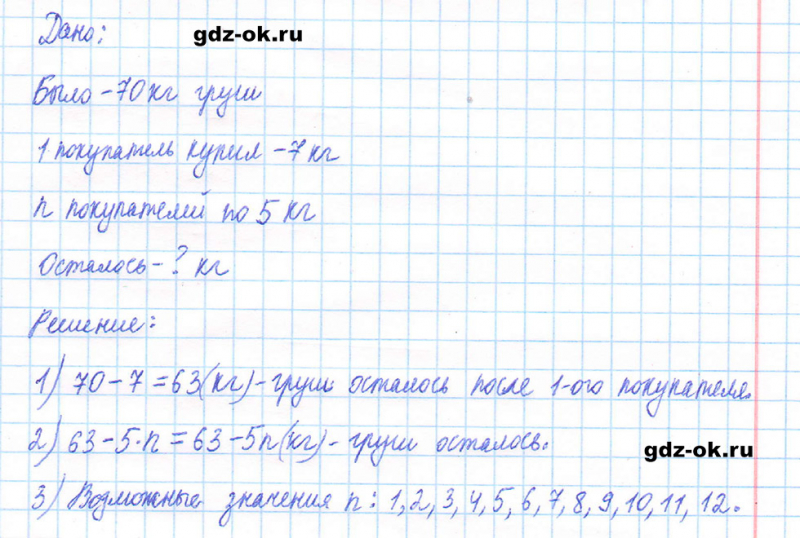 Дано:
gdz-ok.ru
Было - 70 кг груш
1 покупатель купил - 7 кг
n покупателей по 5 кг
Осталось - ? кг
Решение:
1) 70 - 7 = 63 (кг) - груш осталось после 1-ого покупателя.
2) 63 - 5 · n = 63 - 5n (кг) - груш осталось.
gdz-ok.ru
3) Возможные значения n: 1, 2, 3, 4, 5, 6, 7, 8, 9, 10, 11, 12.